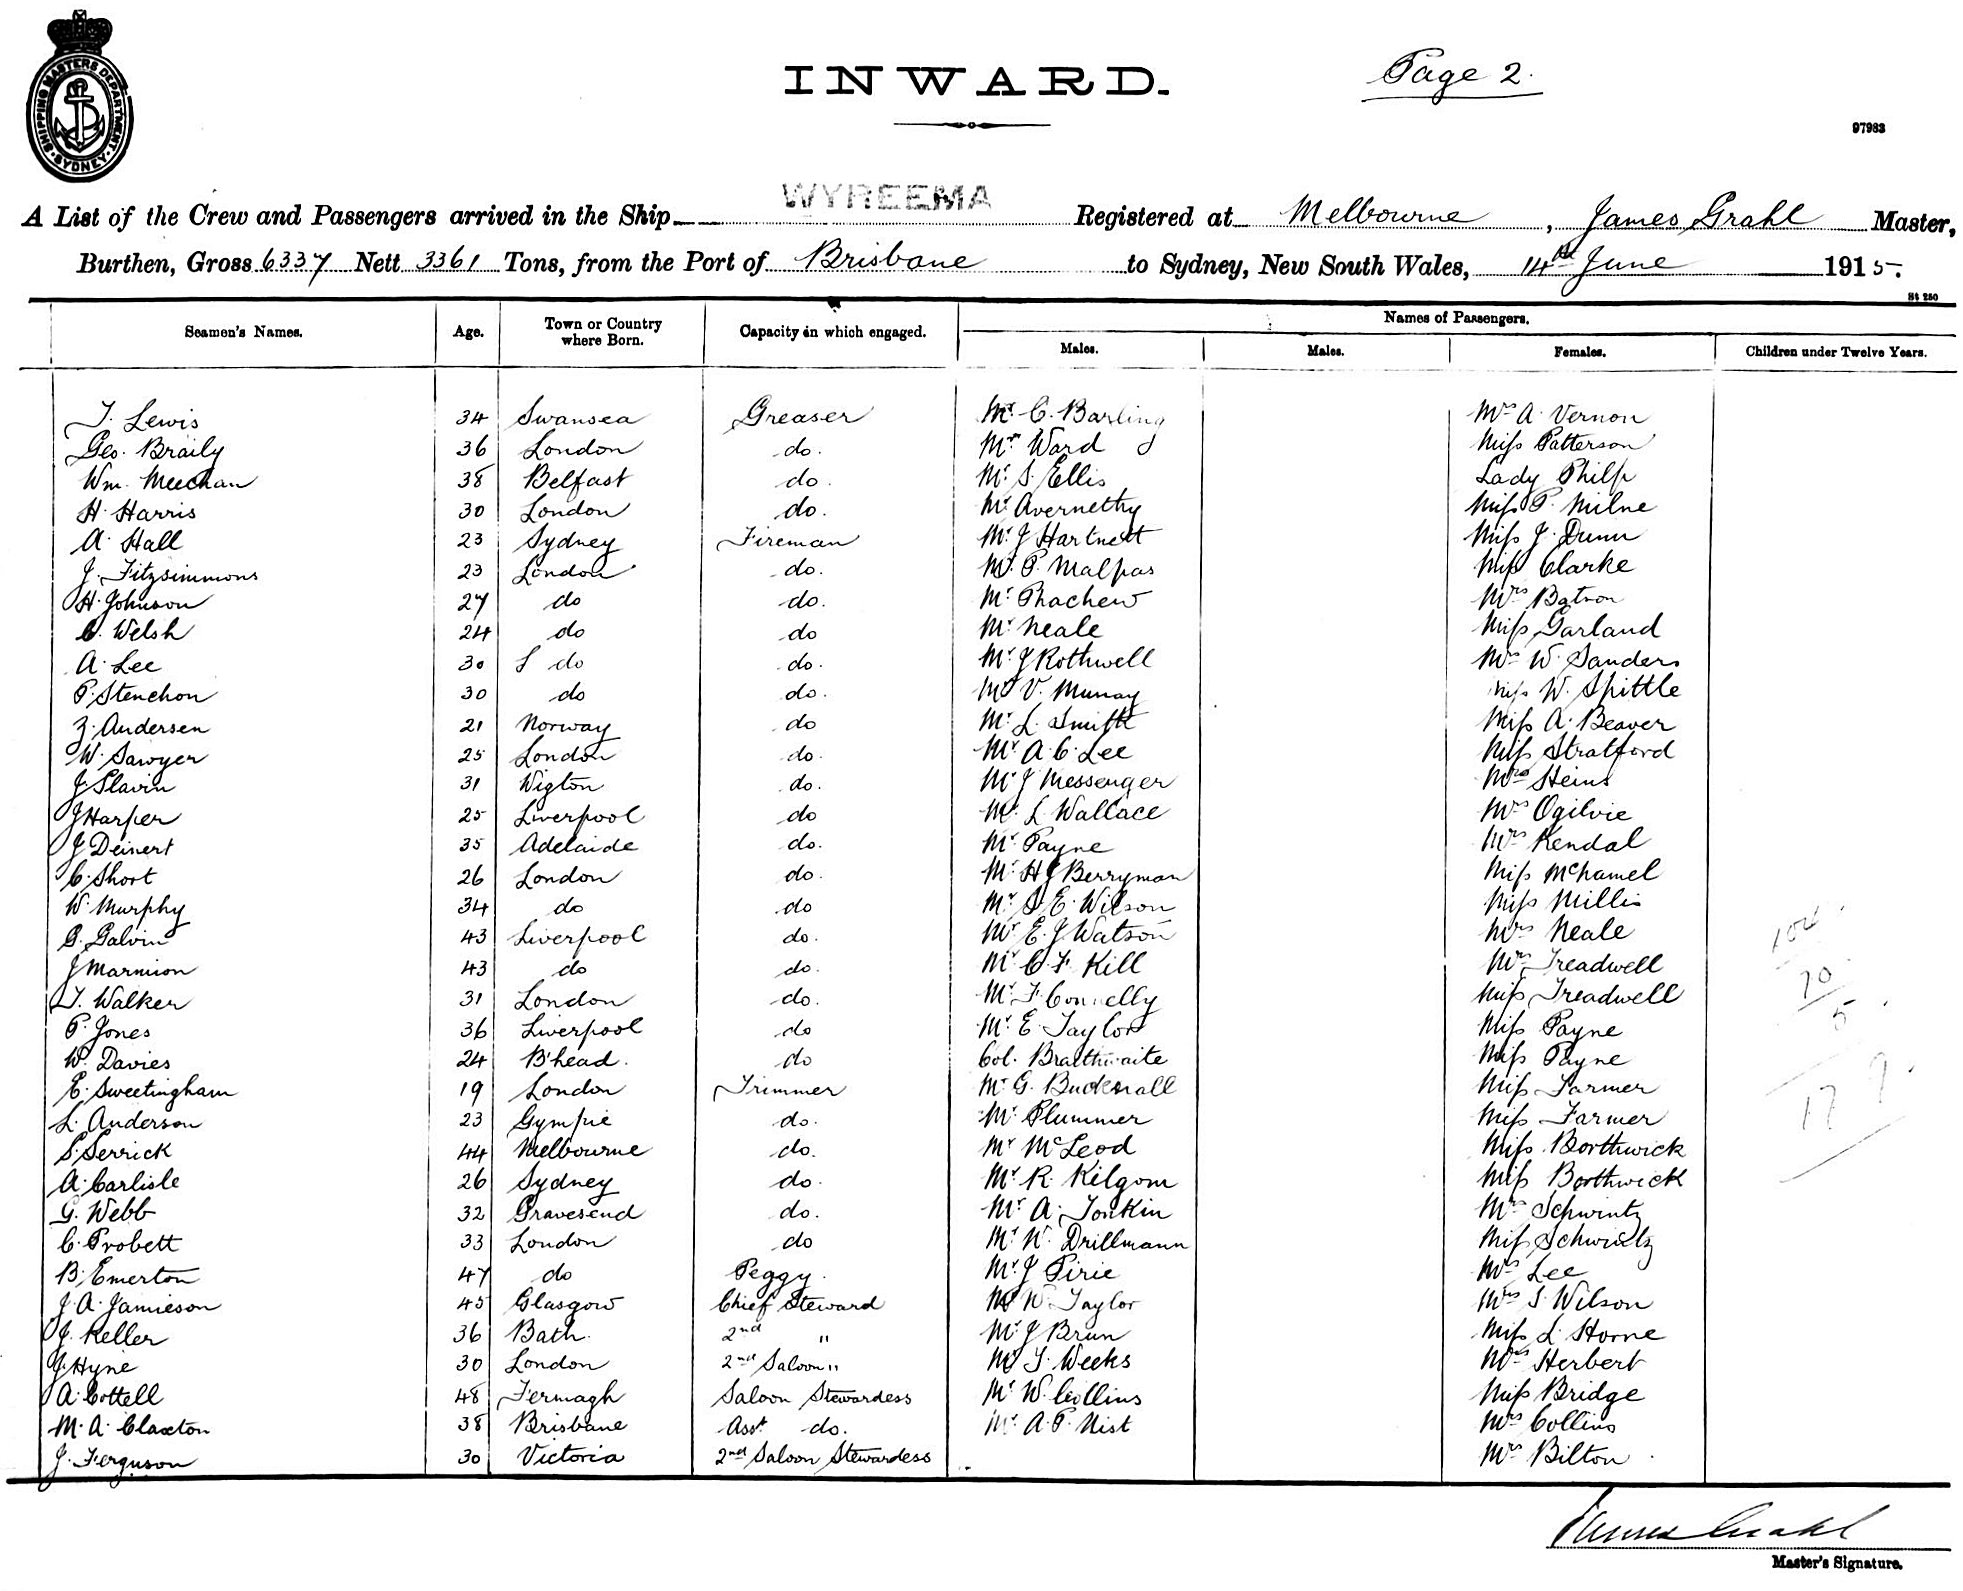 SHIPPING MASTERS DEPARTMENT. SYDNEY.
INWARD.
Page 2.
97983
A List of the Crew and Passengers arrived in the Ship WYREEMA Registered at Melbourne, James Grahl Master,
Burthen, Gross 6337 Nett 3361 Tons, from the Port of Brisbane to Sydney, New South Wales, 14th June 1915.
St 250
Seamen's Names. Age. Town or Country where Born. Capacity in which engaged. Names of Passengers.
Males. Males. Females. Children under Twelve Years.
T. Lewis 34 Swansea Greaser Mr C. Barling Mrs A. Vernon
Geo. Braily 36 London do. Mr Ward Miss Patterson
Wm. Meechan 38 Belfast do. Mr S. Ellis Lady Philp
H. Harris 30 London do. Mr Avernethy Miss P. Milne
A. Hall 23 Sydney Fireman Mr J Hartnett Miss J. Dunn
J. Fitzsimmons 23 London do. Mr P. Malpas Miss Clarke
H. Johnson 27 do do. Mr Phachew Mrs
C. Welsh 24 do do Mr Neale Miss Garland
A. Lee 30 do do. Mr J Rothwell Mrs W. Sanders
P. Stenchon 30 do do. Mr V. Murray Miss W. Spittle
Z. Andersen 21 Norway do Mr L. Smith Miss A. Beaver
W. Sawyer 25 London do. Mr A. C. Lee Miss Stratford
J. Slavin 31 Wigton do. Mr J Messenger Mrs Heins
J Harper 25 Liverpool do Mr L Wallace Mrs Ogilvie
J Deinert 35 Adelaide do. Mr Payne Mrs Kendal
C. Short 26 London do. Mr H J Berryman Miss McHamel
W. Murphy 34 do do Mr S E. Wilson Miss Millis
G. Galvin 43 Liverpool do. Mr E. J Watson Mrs Neale
J Marmion 43 do do. Mr C. F. Kill Mrs Treadwell
T. Walker 31 London do. Mr F Connelly Miss Treadwell
P. Jones 36 Liverpool do Mr E. Taylor Miss Payne
W. Davies 24 B'head. do Col. Braithwaite Miss Payne
E. Sweetingham 19 London Trimmer Mr G. Bucknall Miss Farmer
L. Anderson 23 Gympie do. Mr Plummer Miss Farmer
S. Serrick 44 Melbourne do. Mr McLeod Miss Borthwick
A. Carlisle 26 Sydney do. Mr R. Kilgom Miss Borthwick
G. Webb 32 Gravesend do. Mr A. Tonkin Mrs Schwintz
C. Probett 33 London do Mr W. Drillmann Miss Schwintz
B. Emerton 47 do Peggy. Mr J Pirie Mrs Lee
J. A. Jamieson 45 Glasgow Chief Steward Mr W. Taylor Mrs S. Wilson
J. Keller 36 Bath. 2nd " Mr J Brun Miss L. Horne
J. Hyne 30 London 2nd Saloon " Mr T. Weeks Mrs Herbert
A. Cottell 48 Fermagh Saloon Stewardess Mr W. Collins Miss Bridge
M. A. Claxton 38 Brisbane Asst do. Mr A. P. Nist Mrs Collins
J. Ferguson 30 Victoria 2nd Saloon Stewardess Mrs Bilton
104
70
5
179
James Grahl
Master's Signature.